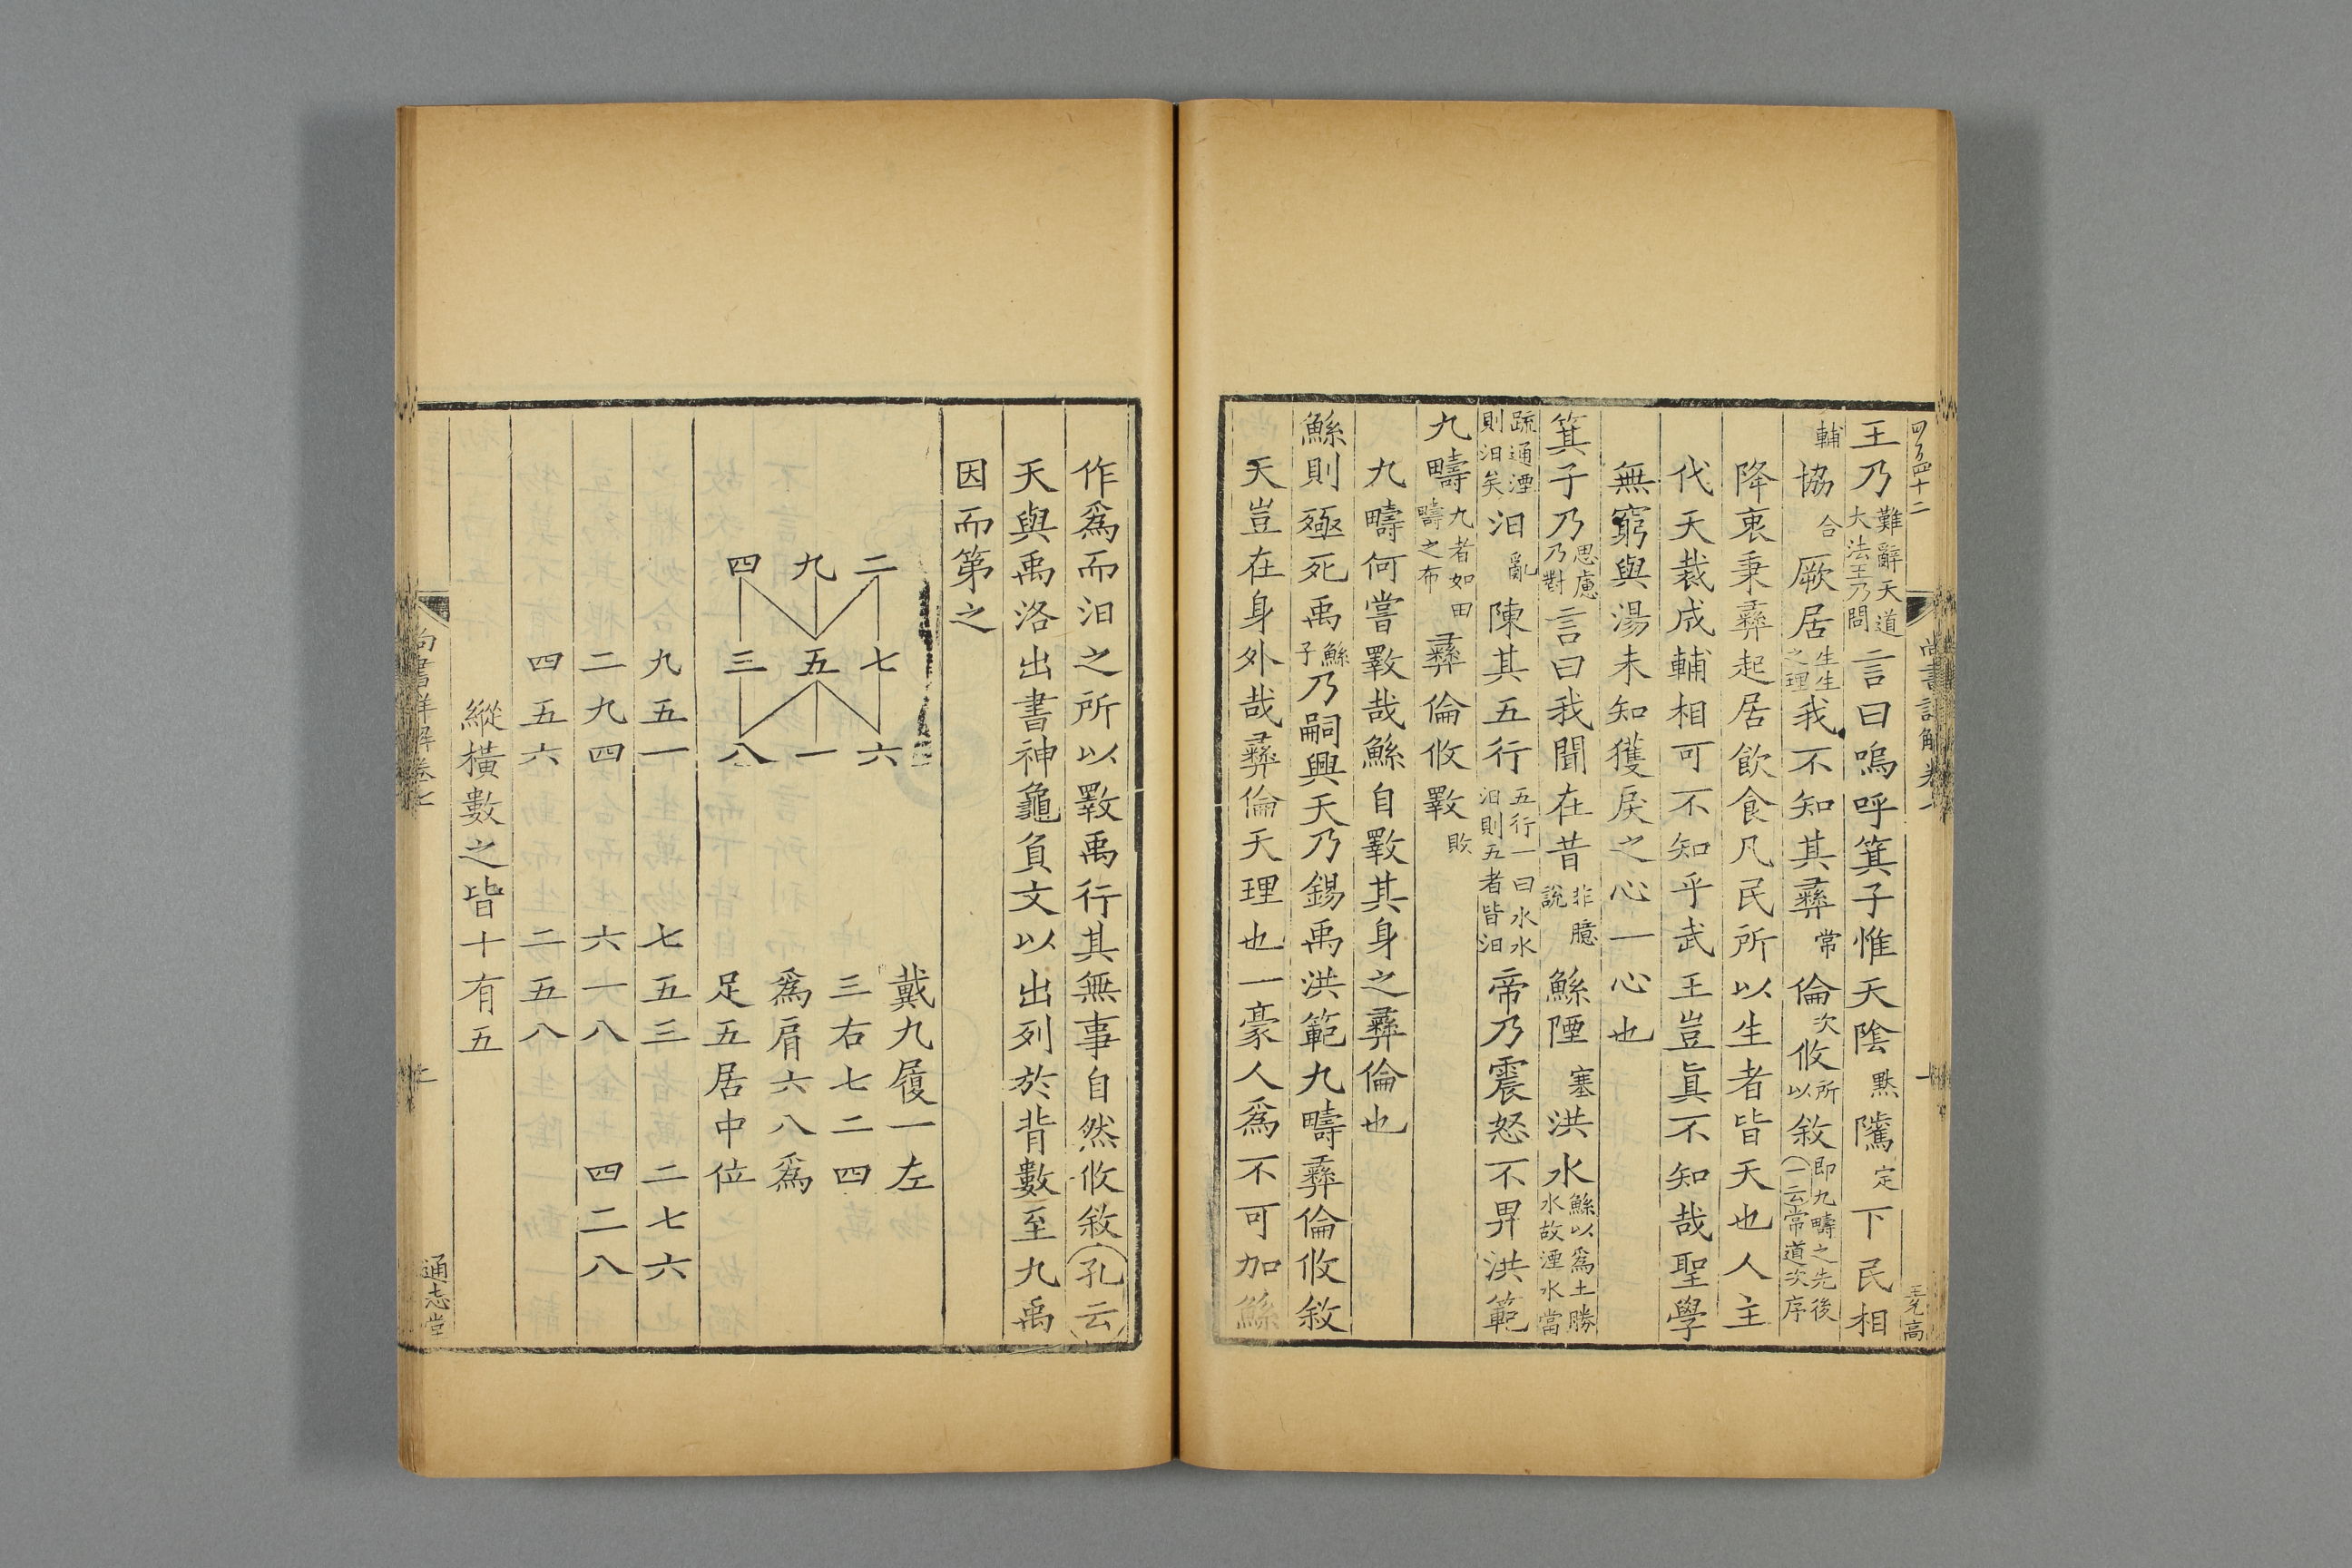 四百四十二
王乃難辭天道大法王乃問言曰嗚呼箕子惟天陰默隲定下民相
輔協合厥居生生之理我不知其彝常倫次攸所以敘即九疇之先後一云常道次序
降衷秉彝起居飲食凡民所以生者皆天也人主
代天裁成輔相可不知乎武王豈眞不知哉聖學
無窮與湯未知獲戾之心一心也
箕子乃思慮乃對言曰我聞在昔非臆說鯀陻塞洪水鯀以爲土勝水故湮水當
疏通湮則汨矣汨亂陳其五行五行一曰水水汨則五者皆汨帝乃震怒不畀洪範
九疇九者如田疇之布彝倫攸斁敗
九疇何嘗斁哉鯀自斁其身之彝倫也
鯀則殛死禹鯀子乃嗣興天乃錫禹洪範九疇彝倫攸敘
天豈在身外哉彝倫天理也一豪人爲不可加鯀
尚書詳解卷
王允高
作爲而汨之所以斁禹行其無事自然攸敘孔云
天與禹洛出書神龜負文以出列於背數至九禹
因而第之
二 七 六
九 五 一
四 三 八
戴九履一左
三右七二四
爲肩六八爲
足五居中位
九五一 七五三 二七六
二九四 六一八 四二八
四五六 二五八
縱橫數之皆十有五
尚書詳解卷七
通志堂